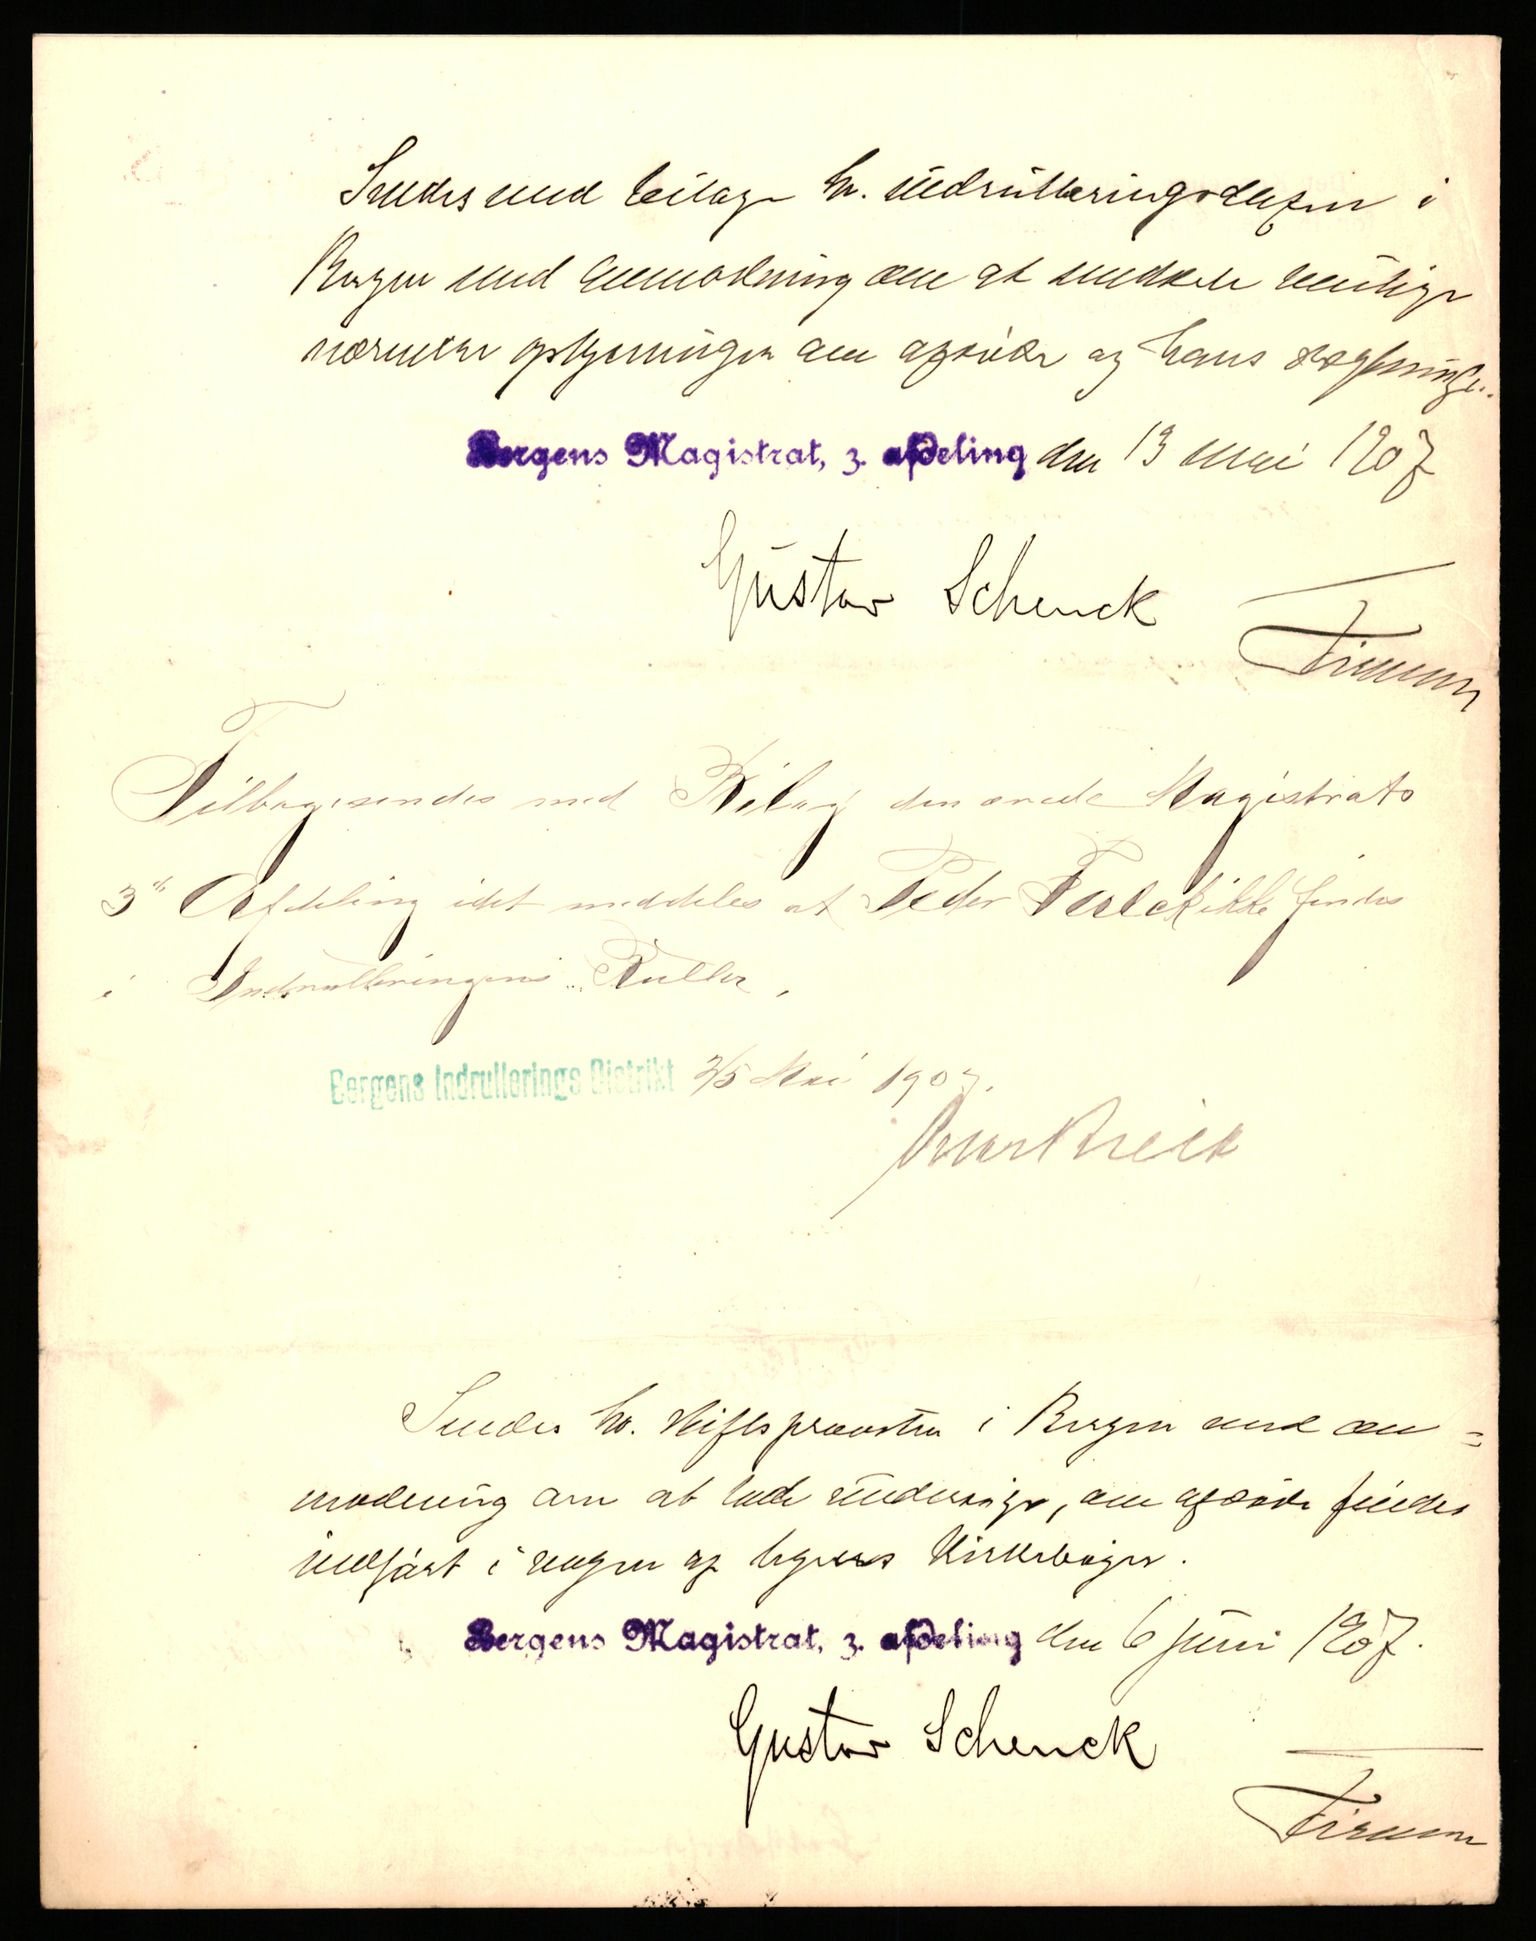 Sendes med bilag hr. Indrulleringschefen i
Bergen med anmodning om at meddele mulige
nærmere oplysninger om afdöde og hans slegtninge.
Bergens Magistrat, 3. afdeling den 13 mai 1907
Gustav Schenck
Tilbagesendes med Bilag den ærede Magistrats
3die Afdeling idet meddeles at Peder ikke findes
i Indrulleringens Ruller.
Bergens Indrullerings Distrikt 2/5 Mai 1907.
Sendes hr. stiftsprovsten i Bergen med an=
modning om at lade undersöge, om afdöde findes
indfört i nogen af byens Kirkeböger.
Bergens Magistrat, 3. afdeling den 6 juni 1907.
Gustav Schenck